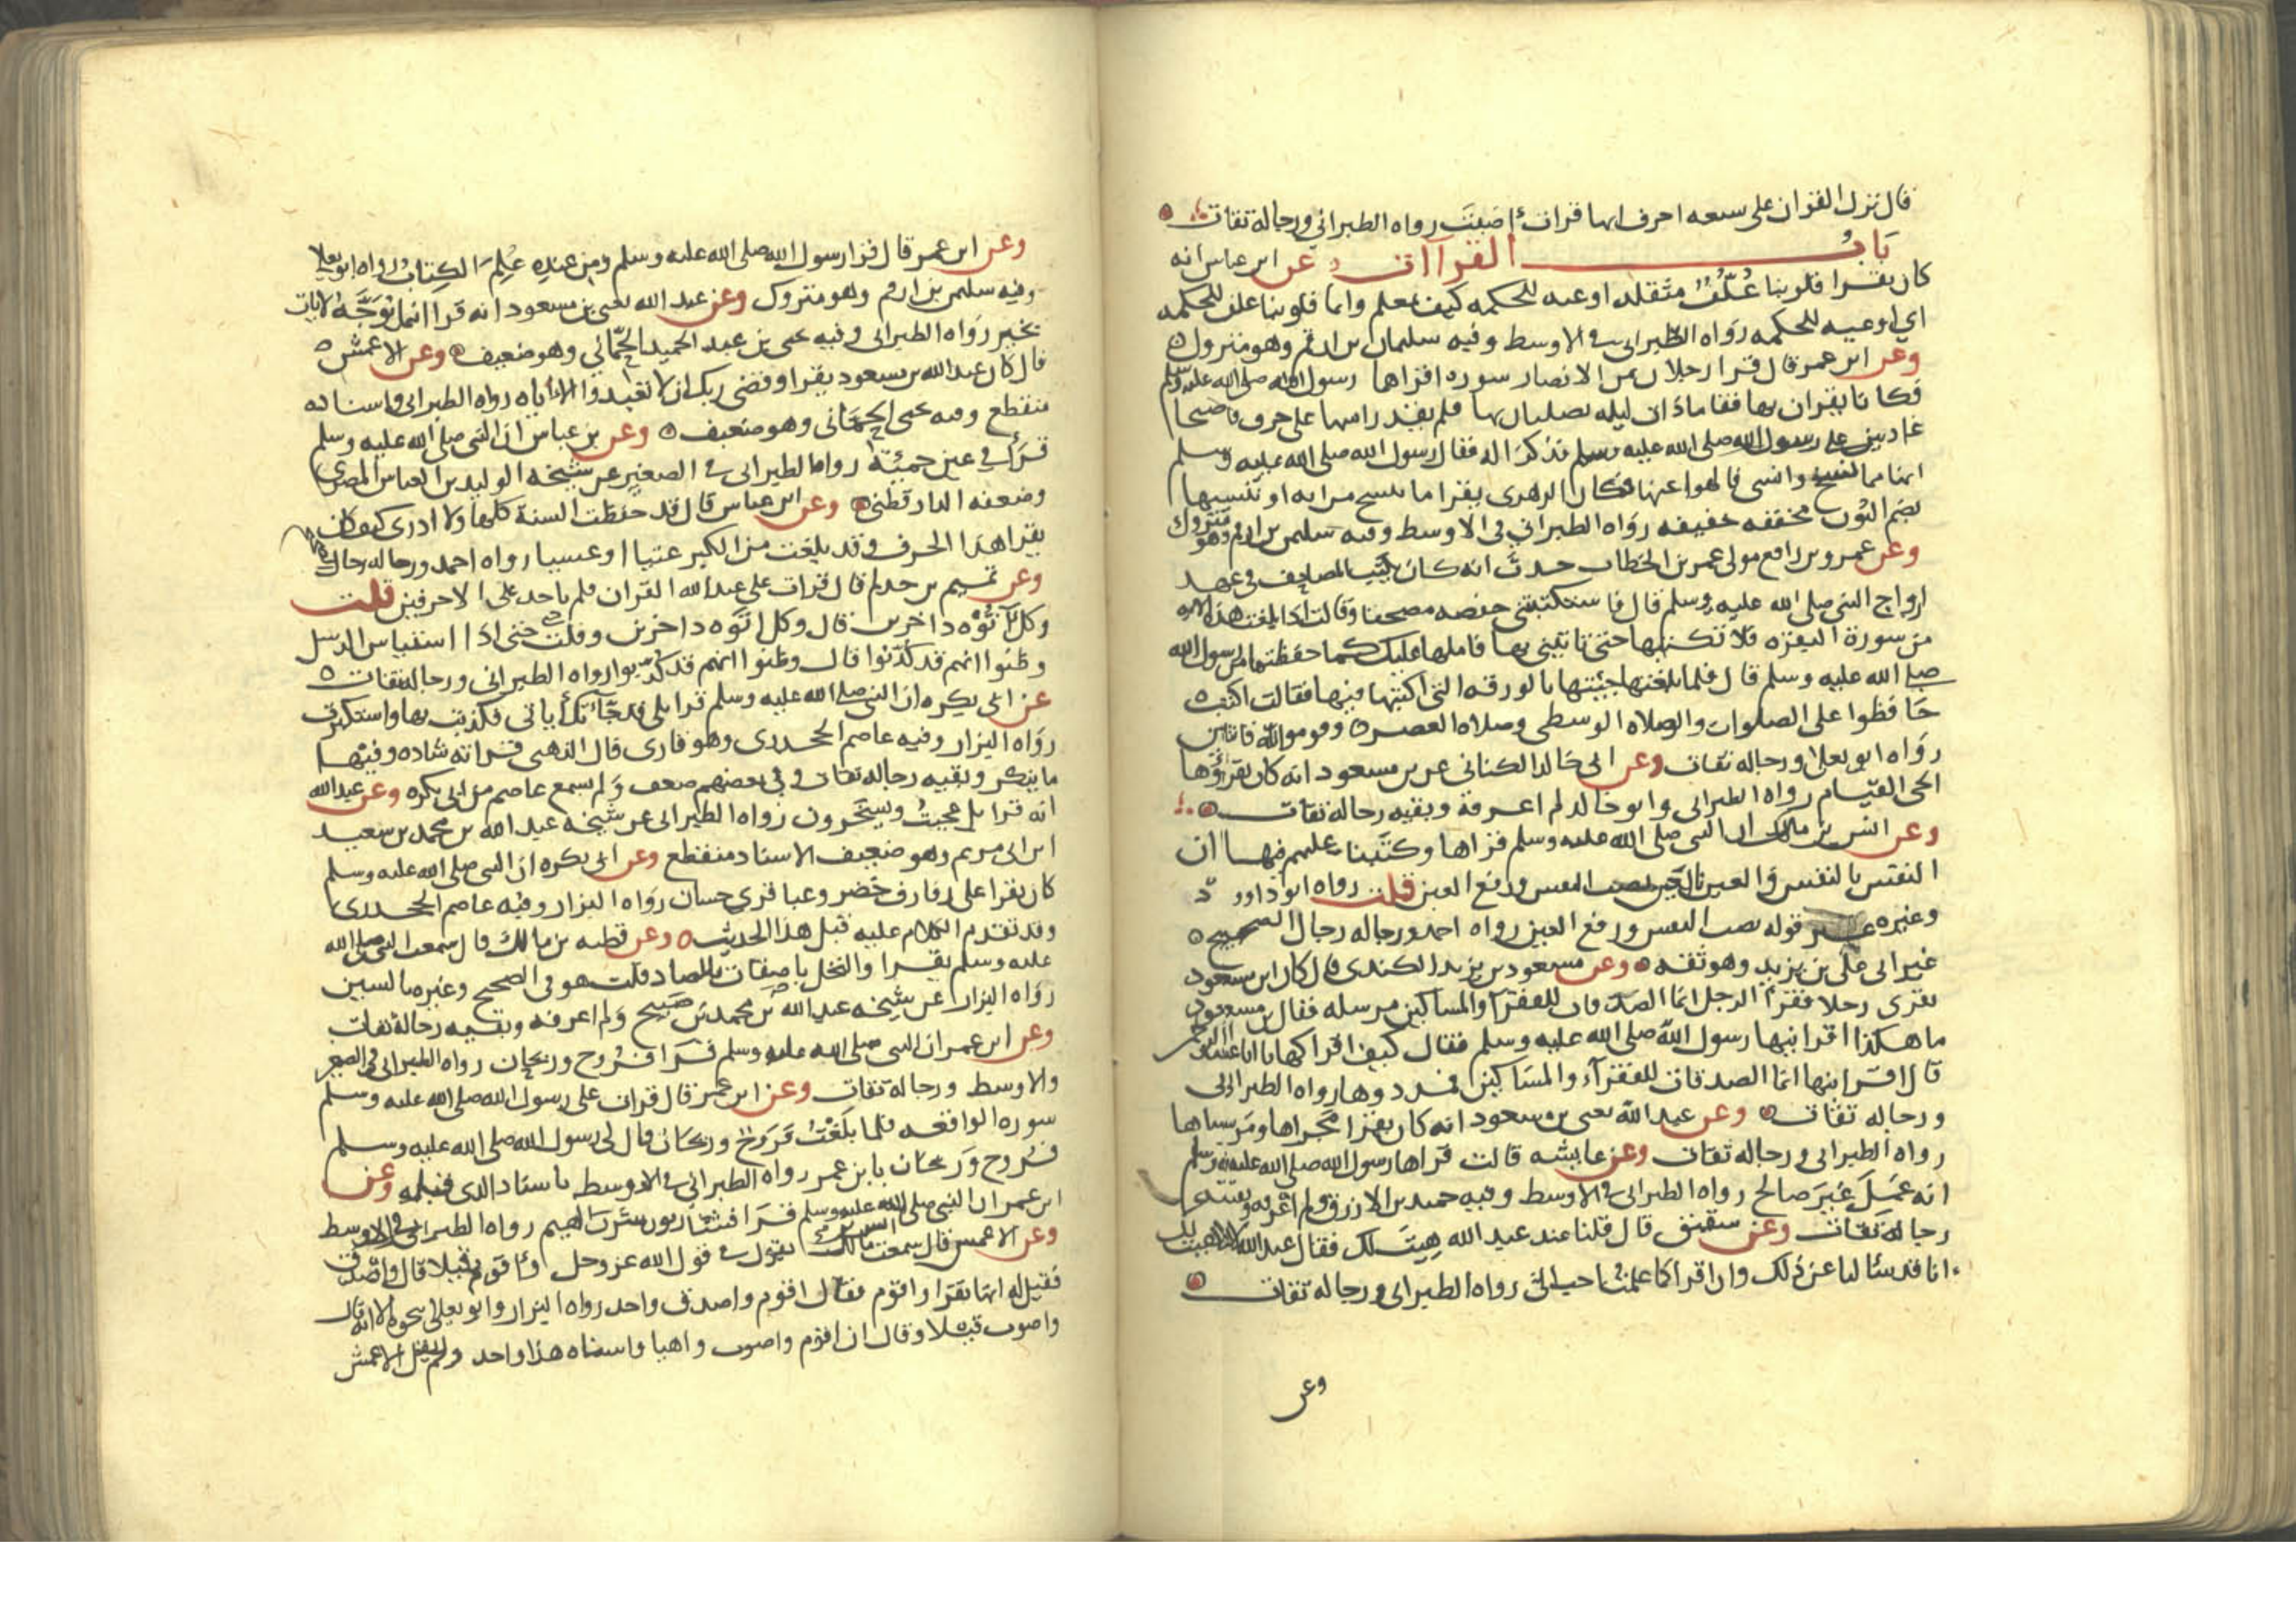 قال نزل القران على سبعه احرف ايها قرات اصبت رواه الطبراني ورجاله ثقات
باب القراآت عن ابن عباس انه
كان يقرا قلوبنا غُلُفٌ مثقله اوعيه للحكمه كيف نعلم وانما قلوبنا غلف للحكمه
اي اوعيه للحكمه رواه الطبراني في الاوسط وفيه سليمان بن ارقم وهو متروك
وعن ابن عمر قال قرا رجلان من الانصار سوره اقراها رسول الله صلى الله عليه وسلم
فكانا يقران بها فقاما ذات ليله يصليان بها فلم يقدرا منها على حرف فاصبحا
غاديين على رسول الله صلى الله عليه وسلم فذكرا له فقال رسول الله صلى الله عليه وسلم
انها مما نسخ وانسي فالهوا عنها فكان الزهري يقرا ما ننسخ من ايه او ننسها
بضم النون مخففه خفيفه رواه الطبراني في الاوسط وفيه سليمن بن ارقم وهو متروك
وعن عمرو بن رافع مولى عمر بن الخطاب حدث انه كان يكتب المصاحف في عهد
ازواج النبي صلى الله عليه وسلم قال فاستكتبتني حفصه مصحفا وقالت اذا بلغت هذه الايه
من سورة البقره فلا تكتبها حتى تاتيني بها فاملها عليك كما حفظتها من رسول الله
صلى الله عليه وسلم قال فلما بلغتها جئتها بالورقه التي اكتبها فيها فقالت اكتب
حافظوا على الصلوات والصلاه الوسطى وصلاه العصر وقوموا لله قانتين
رواه ابو يعلا ورجاله ثقات وعن ابي خالد الكناني عن بن مسعود انه كان يقرؤها
الحي القيام رواه الطبراني وابو خالد لم اعرفه وبقيه رجاله ثقات
وعن انس بن مالك ان النبي صلى الله عليه وسلم قراها وكتبنا عليهم فيها ان
النفس بالنفس والعين بالعين نصب النفس ورفع العين قلت رواه ابو داوود
وغيره قوله نصب النفس ورفع العين رواه احمد ورجاله رجال الصحيح
غير ابي علي بن يزيد وهو ثقه وعن مسعود بن يزيد الكندي قال كان ابن مسعود
يقري رجلا فقرا الرجل انما الصدقات للفقرآ والمساكين مرسله فقال بن مسعود
ما هكذا اقرانيها رسول الله صلى الله عليه وسلم فقال كيف اقراكها يا ابا عبد الرحمن
قال اقرانيها انما الصدقات للفقرآء والمساكين فمددوها رواه الطبراني
ورجاله ثقات وعن عبد الله يعني بن مسعود انه كان يقرا مجراها ومرساها
رواه الطبراني ورجاله ثقات وعن عايشه قالت قراها رسول الله صلى الله عليه وسلم
انه عَمِلَ غيرَ صالح رواه الطبراني في الاوسط وفيه حميد بن الازرق ولم اعرفه وبقيه
رجاله ثقات وعن شقيق قال قلنا عند عبد الله هيت لك فقال عبد الله
انا قد سالنا عن ذلك وان اقرا كما علمنا احب الي رواه الطبراني ورجاله ثقات
وعن
وعن ابن عمر قال قرا رسول الله صلى الله عليه وسلم ومِن عندِه عُلِمَ الكتابُ رواه ابو يعلا
وفيه سليمن بن ارقم وهو متروك وعن عبد الله يعني بن مسعود انه قرا اينما يُوَجَّهْ لا يات
بخير رواه الطبراني وفيه يحيى بن عبد الحميد الحماني وهو ضعيف وعن الاعمش
قال كان عبد الله بن مسعود يقرا وقضى ربك ان لا تعبدوا الا اياه رواه الطبراني واسناده
منقطع وفيه يحيى الحماني وهو ضعيف وعن بن عباس ان النبي صلى الله عليه وسلم
قرا في عين حمئة رواه الطبراني في الصغير عن شيخه الوليد بن العباس المصري
وضعفه الدارقطني وعن ابن عباس قال قد حفظت السنة كلها ولا ادرى كيف كان
يقرا هذا الحرف وقد بلغت من الكبر عتيا او عسيا رواه احمد ورجاله رجال الصحيح
وعن تميم بن حذلم قال قرات على عبد الله القران فلم ياخذ علي الا حرفين قلت
وكل آتُوه داخرين قال وكل اتَوه داخرين وقلت حتى اذا استيئاس الرسل
وظنوا انهم قد كذّبوا قال وظنوا انهم قد كُذِبوا رواه الطبراني ورجاله ثقات
عن ابي بكره ان النبي صلى الله عليه وسلم قرا بلى قد جآتك آياتي فكذبت بها واستكبرت
رواه البزار وفيه عاصم الجحدري وهو قاري قال الذهبي قراته شاده وفيها
ما ينكر وبقيه رجاله ثقات وفي بعضهم ضعف ولم يسمع عاصم من ابي بكره وعن عبد الله
انه قرا بل عجبتُ ويسخرون رواه الطبراني عن شيخه عبد الله بن محمد بن سعيد
ابن ابي مريم وهو ضعيف الاسناد منقطع وعن ابي بكره ان النبي صلى الله عليه وسلم
كان يقرا على رفارف خضر وعباقري حسان رواه البزار وفيه عاصم الجحدري
وقد تقدم الكلام عليه قبل هذا الحديث وعن قطبه بن مالك قال سمعت النبي صلى الله
عليه وسلم يقرا والنخل باصقات بالصاد قلت هو في الصحيح وغيره بالسين
رواه البزار عن شيخه عبد الله بن محمد بن صبيح ولم اعرفه وبقيه رجاله ثقات
وعن ابن عمر ان النبي صلى الله عليه وسلم قرا فرُوح وريحان رواه الطبراني في الصغير
والاوسط ورجاله ثقات وعن ابن عمر قال قرات على رسول الله صلى الله عليه وسلم
سوره الواقعه فلما بلغتُ فرَوح وريحان قال لي رسول الله صلى الله عليه وسلم
فرُوح وريحان يا بن عمر رواه الطبراني في الاوسط باسناد الذي قبله وعن
ابن عمر ان النبي صلى الله عليه وسلم قرا فشاربون شرب الهيم رواه الطبراني في الاوسط
وعن الاعمش قال سمعت انس بن مالك يقول في قول الله عز وجل واقوم قيلا قال واصدق
فقيل له انها تقرا واقوم فقال اقوم واصدق واحد رواه البزار وابو يعلى بنحوه الا انه قال
واصوب قيلا وقال ان اقوم واصوب واهيا واشباه هذا واحد ولم يقل الاعمش